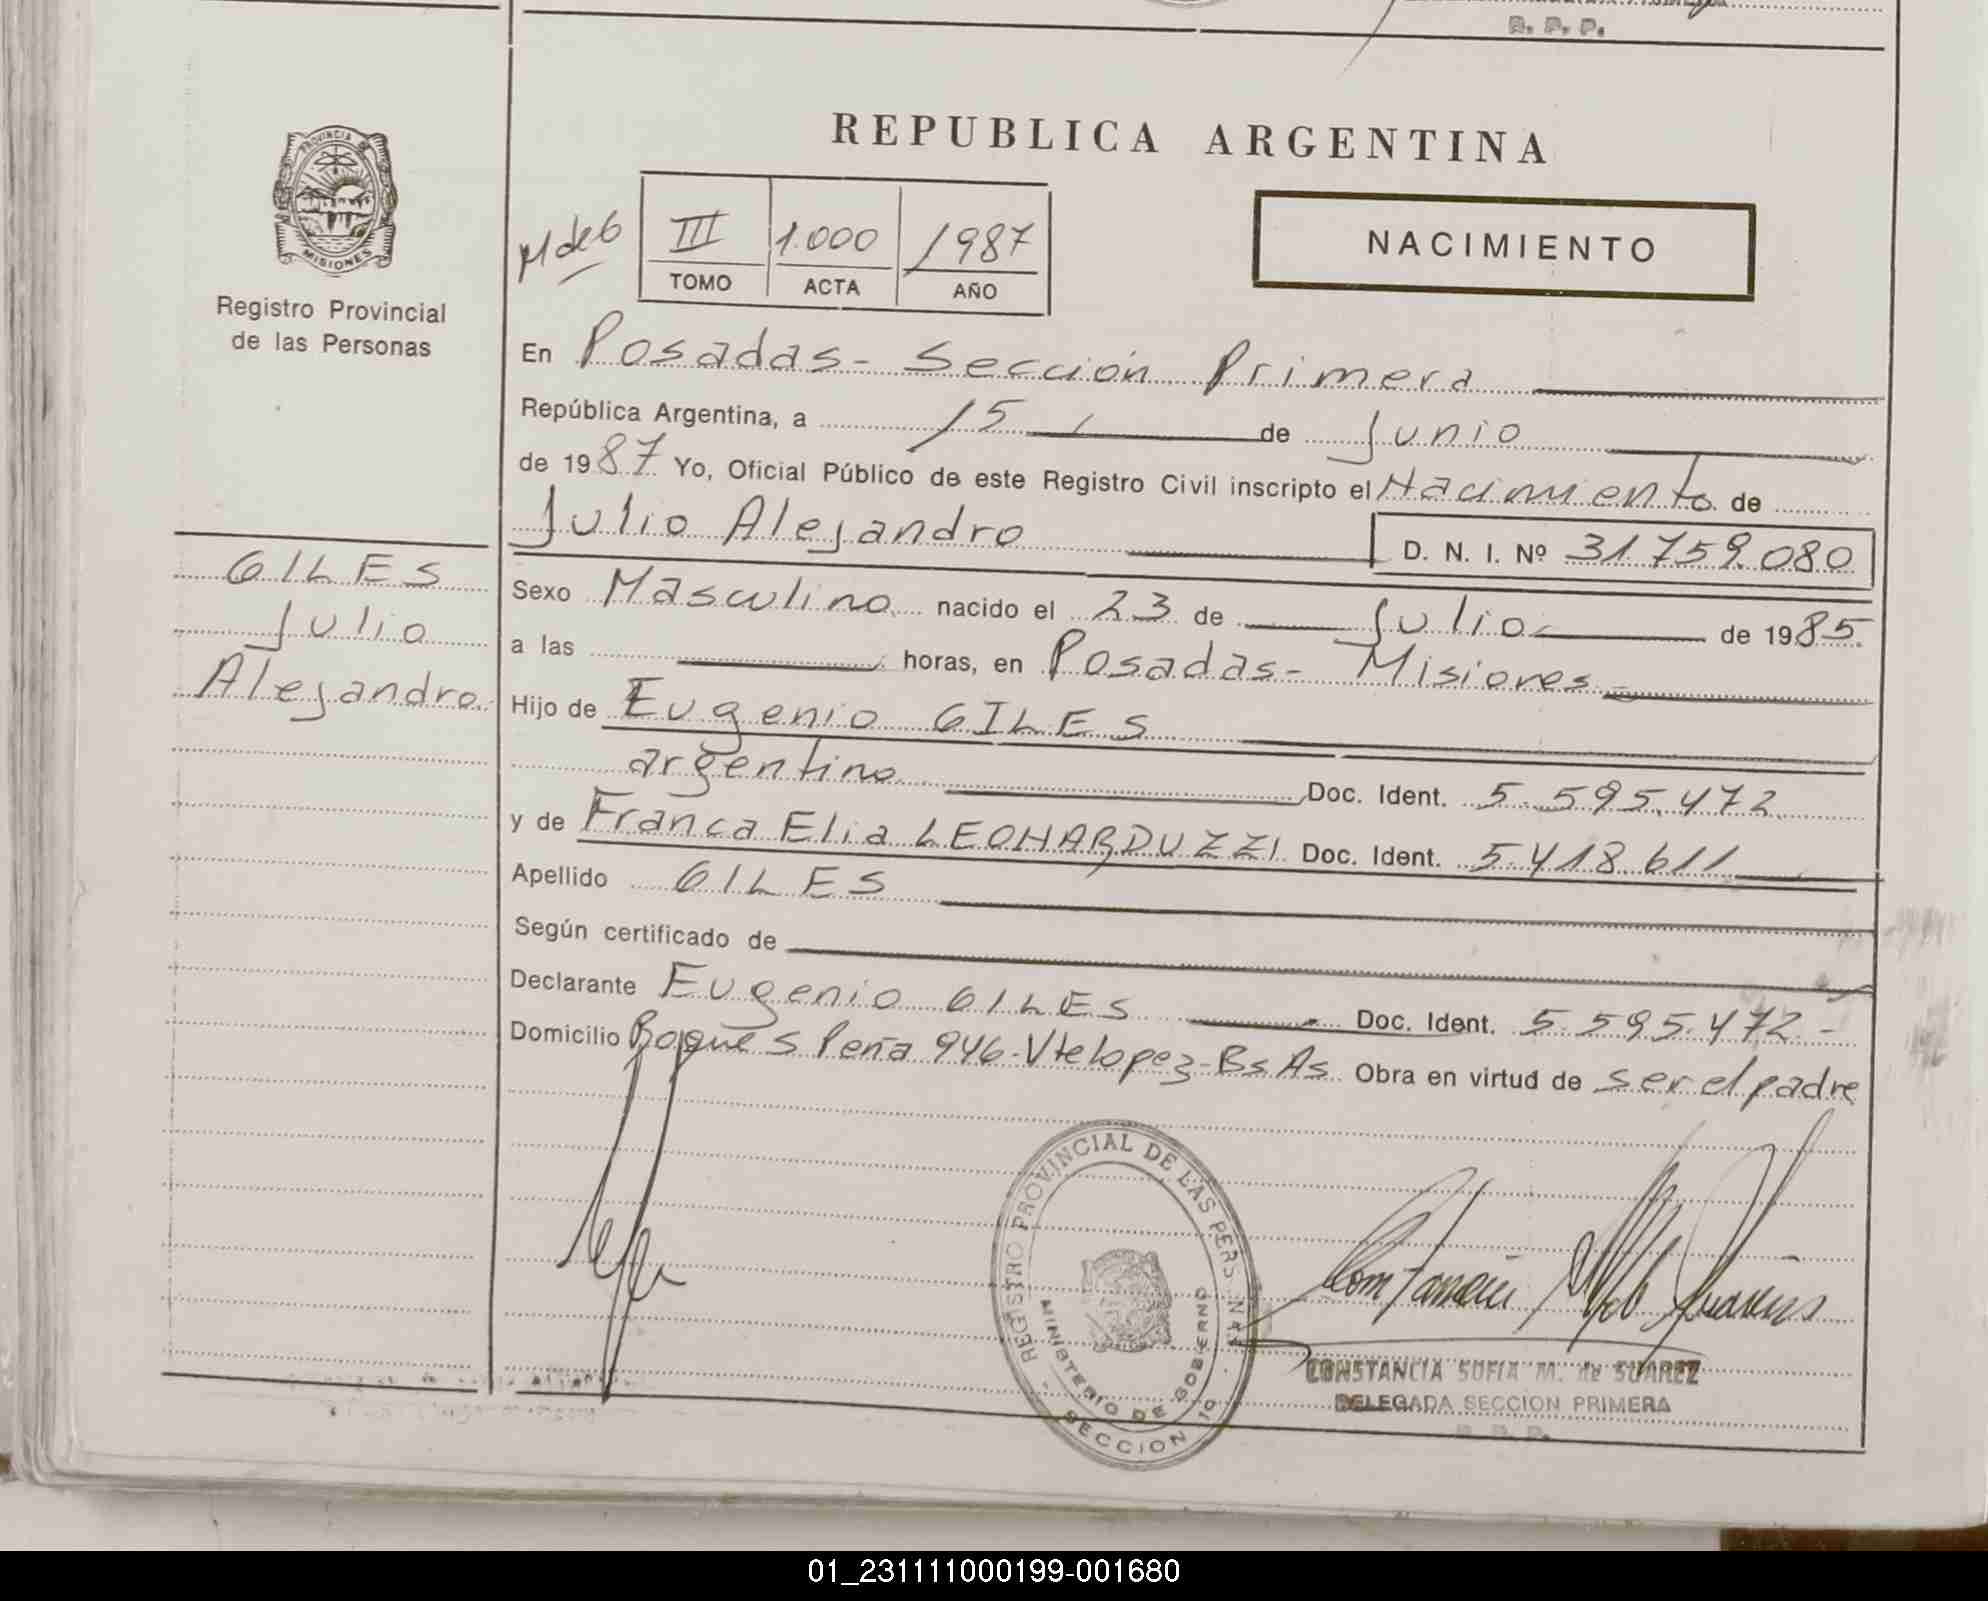 R. P. P.
PROVINCIA DE
MISIONES
Registro Provincial
de las Personas
GILES
Julio
Alejandro
REPUBLICA ARGENTINA
III 1.000 1987
TOMO ACTA AÑO
NACIMIENTO
En Posadas - Sección Primera
República Argentina, a 15 de Junio
de 1987 Yo, Oficial Público de este Registro Civil inscripto el Nacimiento de
Julio Alejandro D. N. I. Nº 31.759.080
Sexo Masculino nacido el 23 de Julio de 1985.
a las horas, en Posadas - Misiones
Hijo de Eugenio GILES
argentino Doc. Ident. 5.595.472
y de Franca Elia LEONARDUZZI Doc. Ident. 5.418.611
Apellido GILES
Según certificado de
Declarante Eugenio GILES Doc. Ident. 5.595.472 -
Domicilio Roque S Peña 946 - Vte Lopez - Bs As Obra en virtud de ser el padre
REGISTRO PROVINCIAL DE LAS PERS
MINISTERIO DE GOBIERNO
SECCION 1º
CONSTANCIA SOFIA M. de SUAREZ
DELEGADA SECCION PRIMERA
R. P. P.
01_231111000199-001680